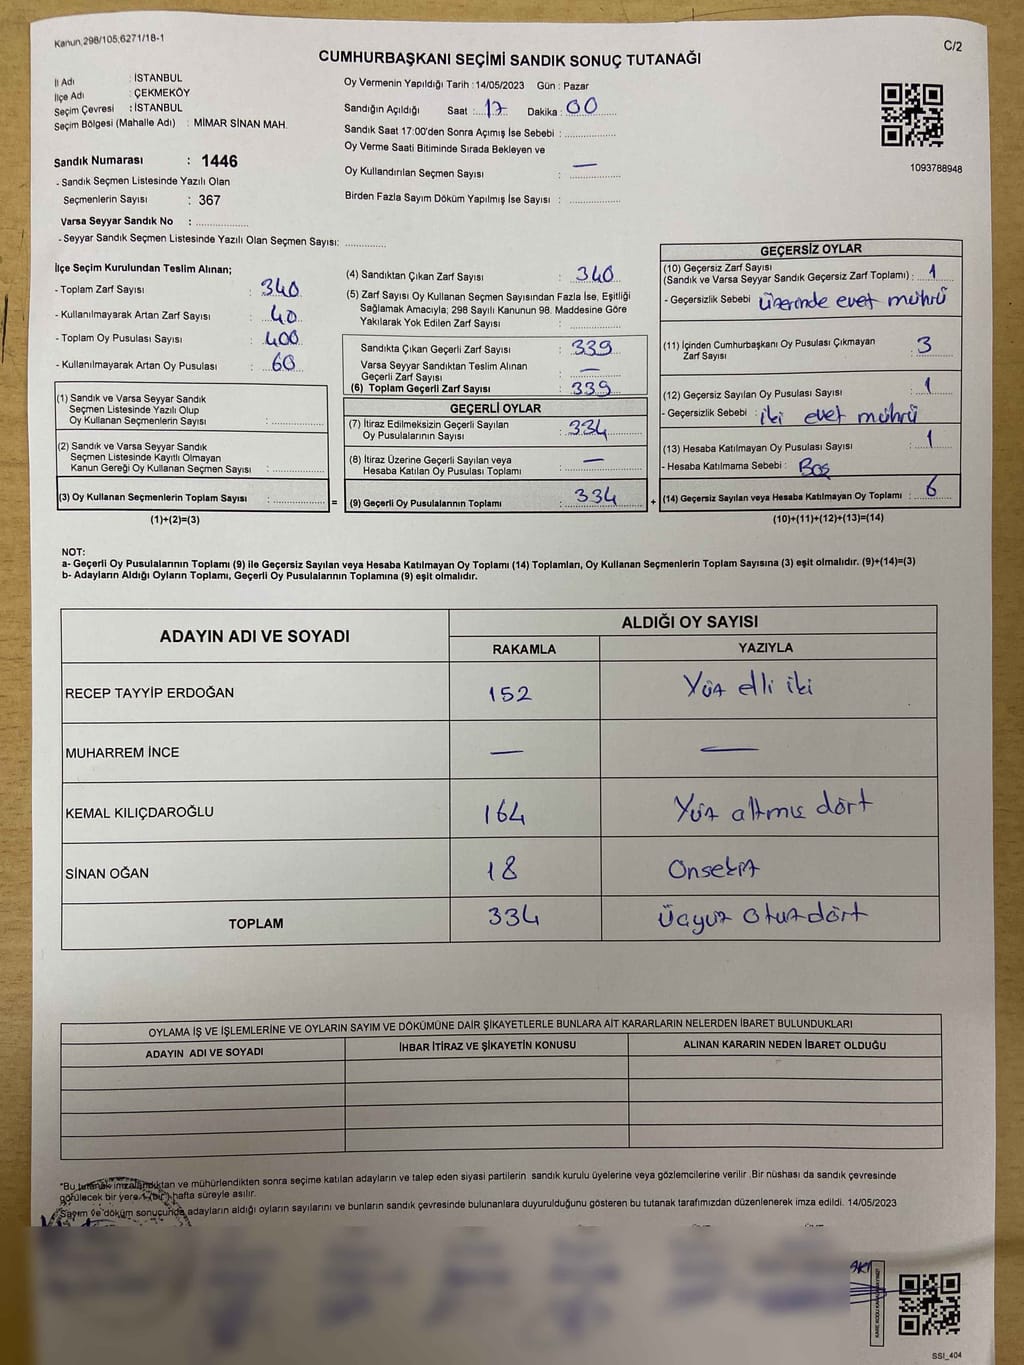 Kanun.298/105,6271/18-1
C/2
CUMHURBAŞKANI SEÇİMİ SANDIK SONUÇ TUTANAĞI
İl Adı : İSTANBUL
İlçe Adı : ÇEKMEKÖY
Seçim Çevresi : İSTANBUL
Seçim Bölgesi (Mahalle Adı) : MİMAR SİNAN MAH.
Sandık Numarası : 1446
- Sandık Seçmen Listesinde Yazılı Olan
Seçmenlerin Sayısı : 367
Varsa Seyyar Sandık No : ..............
- Seyyar Sandık Seçmen Listesinde Yazılı Olan Seçmen Sayısı: ..............
Oy Vermenin Yapıldığı Tarih : 14/05/2023 Gün : Pazar
Sandığın Açıldığı Saat : 17 Dakika : 00
Sandık Saat 17:00'den Sonra Açımış İse Sebebi : ..............
Oy Verme Saati Bitiminde Sırada Bekleyen ve
Oy Kullandırılan Seçmen Sayısı : —
Birden Fazla Sayım Döküm Yapılmış İse Sayısı : ..............
1093788948
İlçe Seçim Kurulundan Teslim Alınan;
- Toplam Zarf Sayısı : 340
- Kullanılmayarak Artan Zarf Sayısı : 40
- Toplam Oy Pusulası Sayısı : 400
- Kullanılmayarak Artan Oy Pusulası : 60
(1) Sandık ve Varsa Seyyar Sandık
Seçmen Listesinde Yazılı Olup
Oy Kullanan Seçmenlerin Sayısı : ..............
(2) Sandık ve Varsa Seyyar Sandık
Seçmen Listesinde Kayıtlı Olmayan
Kanun Gereği Oy Kullanan Seçmen Sayısı : ..............
(3) Oy Kullanan Seçmenlerin Toplam Sayısı : .............. =
(1)+(2)=(3)
(4) Sandıktan Çıkan Zarf Sayısı : 340
(5) Zarf Sayısı Oy Kullanan Seçmen Sayısından Fazla İse, Eşitliği
Sağlamak Amacıyla; 298 Sayılı Kanunun 98. Maddesine Göre
Yakılarak Yok Edilen Zarf Sayısı : ..............
Sandıkta Çıkan Geçerli Zarf Sayısı : 339
Varsa Seyyar Sandıktan Teslim Alınan
Geçerli Zarf Sayısı : —
(6) Toplam Geçerli Zarf Sayısı : 339
GEÇERLİ OYLAR
(7) İtiraz Edilmeksizin Geçerli Sayılan
Oy Pusulalarının Sayısı : 334
(8) İtiraz Üzerine Geçerli Sayılan veya
Hesaba Katılan Oy Pusulası Toplamı : —
(9) Geçerli Oy Pusulalarının Toplamı : 334 +
GEÇERSİZ OYLAR
(10) Geçersiz Zarf Sayısı
(Sandık ve Varsa Seyyar Sandık Geçersiz Zarf Toplamı) : 1
- Geçersizlik Sebebi : üzerinde evet mührü
(11) İçinden Cumhurbaşkanı Oy Pusulası Çıkmayan
Zarf Sayısı : 3
(12) Geçersiz Sayılan Oy Pusulası Sayısı : 1
- Geçersizlik Sebebi : iki evet mührü
(13) Hesaba Katılmayan Oy Pusulası Sayısı : 1
- Hesaba Katılmama Sebebi : Boş
(14) Geçersiz Sayılan veya Hesaba Katılmayan Oy Toplamı : 6
(10)+(11)+(12)+(13)=(14)
NOT:
a- Geçerli Oy Pusulalarının Toplamı (9) ile Geçersiz Sayılan veya Hesaba Katılmayan Oy Toplamı (14) Toplamları, Oy Kullanan Seçmenlerin Toplam Sayısına (3) eşit olmalıdır. (9)+(14)=(3)
b- Adayların Aldığı Oyların Toplamı, Geçerli Oy Pusulalarının Toplamına (9) eşit olmalıdır.
ADAYIN ADI VE SOYADI
ALDIĞI OY SAYISI
RAKAMLA YAZIYLA
RECEP TAYYİP ERDOĞAN 152 Yüz elli iki
MUHARREM İNCE — —
KEMAL KILIÇDAROĞLU 164 Yüz altmış dört
SİNAN OĞAN 18 Onsekiz
TOPLAM 334 Üçyüz otuzdört
OYLAMA İŞ VE İŞLEMLERİNE VE OYLARIN SAYIM VE DÖKÜMÜNE DAİR ŞİKAYETLERLE BUNLARA AİT KARARLARIN NELERDEN İBARET BULUNDUKLARI
ADAYIN ADI VE SOYADI İHBAR İTİRAZ VE ŞİKAYETİN KONUSU ALINAN KARARIN NEDEN İBARET OLDUĞU
*Bu tutanak imzalandıktan ve mühürlendikten sonra seçime katılan adayların ve talep eden siyasi partilerin sandık kurulu üyelerine veya gözlemcilerine verilir .Bir nüshası da sandık çevresinde
görülecek bir yere 1 (bir) hafta süreyle asılır.
Sayım ve döküm sonucunda adayların aldığı oyların sayılarını ve bunların sandık çevresinde bulunanlara duyurulduğunu gösteren bu tutanak tarafımızdan düzenlenerek imza edildi. 14/05/2023
SSI_404